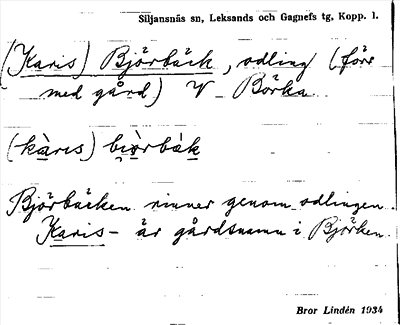 Siljansnäs sn, Leksands och Gagnefs tg, Kopp. l.
(Karis) Björbäck, odling (förr
med gård) V Börka.
(kàrıs) bıòrbàk
Björbäcken rinner genom odlingen.
Karis- är gårdsnamn i Björken.
Bror Lindén 1934